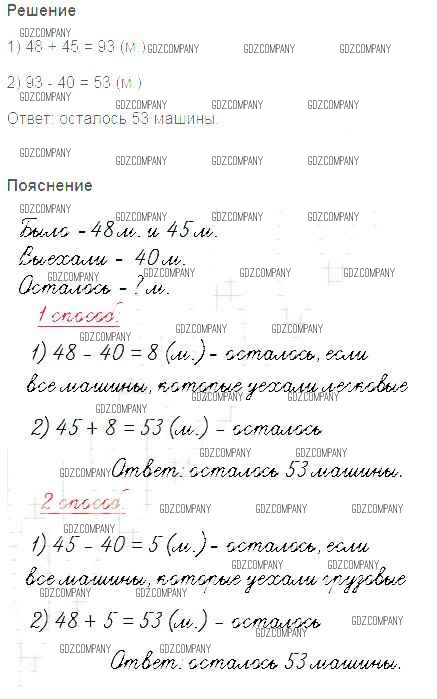 Решение
GDZCOMPANY
1) 48 + 45 = 93 (м.) GDZCOMPANY GDZCOMPANY GDZCOMPANY
2) 93 - 40 = 53 (м.)
GDZCOMPANY GDZCOMPANY GDZCOMPANY GDZCOMPANY
Ответ: осталось 53 машины.
GDZCOMPANY GDZCOMPANY GDZCOMPANY GDZCOMPANY
Пояснение
GDZCOMPANY GDZCOMPANY GDZCOMPANY GDZCOMPANY
Было - 48 м. и 45 м.
Выехали - 40 м.
GDZCOMPANY GDZCOMPANY GDZCOMPANY GDZCOMPANY
Осталось - ? м.
1 способ.
GDZCOMPANY GDZCOMPANY GDZCOMPANY
1) 48 - 40 = 8 (м.) - осталось, если
GDZCOMPANY GDZCOMPANY GDZCOMPANY
все машины, которые уехали легковые
GDZCOMPANY GDZCOMPANY GDZCOMPANY
2) 45 + 8 = 53 (м.) - осталось
GDZCOMPANY GDZCOMPANY GDZCOMPANY
Ответ: осталось 53 машины.
2 способ.
GDZCOMPANY GDZCOMPANY GDZCOMPANY
GDZCOMPANY
1) 45 - 40 = 5 (м.) - осталось, если
GDZCOMPANY GDZCOMPANY
все машины, которые уехали грузовые
GDZCOMPANY GDZCOMPANY GDZCOMPANY
2) 48 + 5 = 53 (м.) - осталось GDZCOMPANY
GDZCOMPANY
GDZCOMPANY GDZCOMPANY GDZCOMPANY
Ответ: осталось 53 машины.